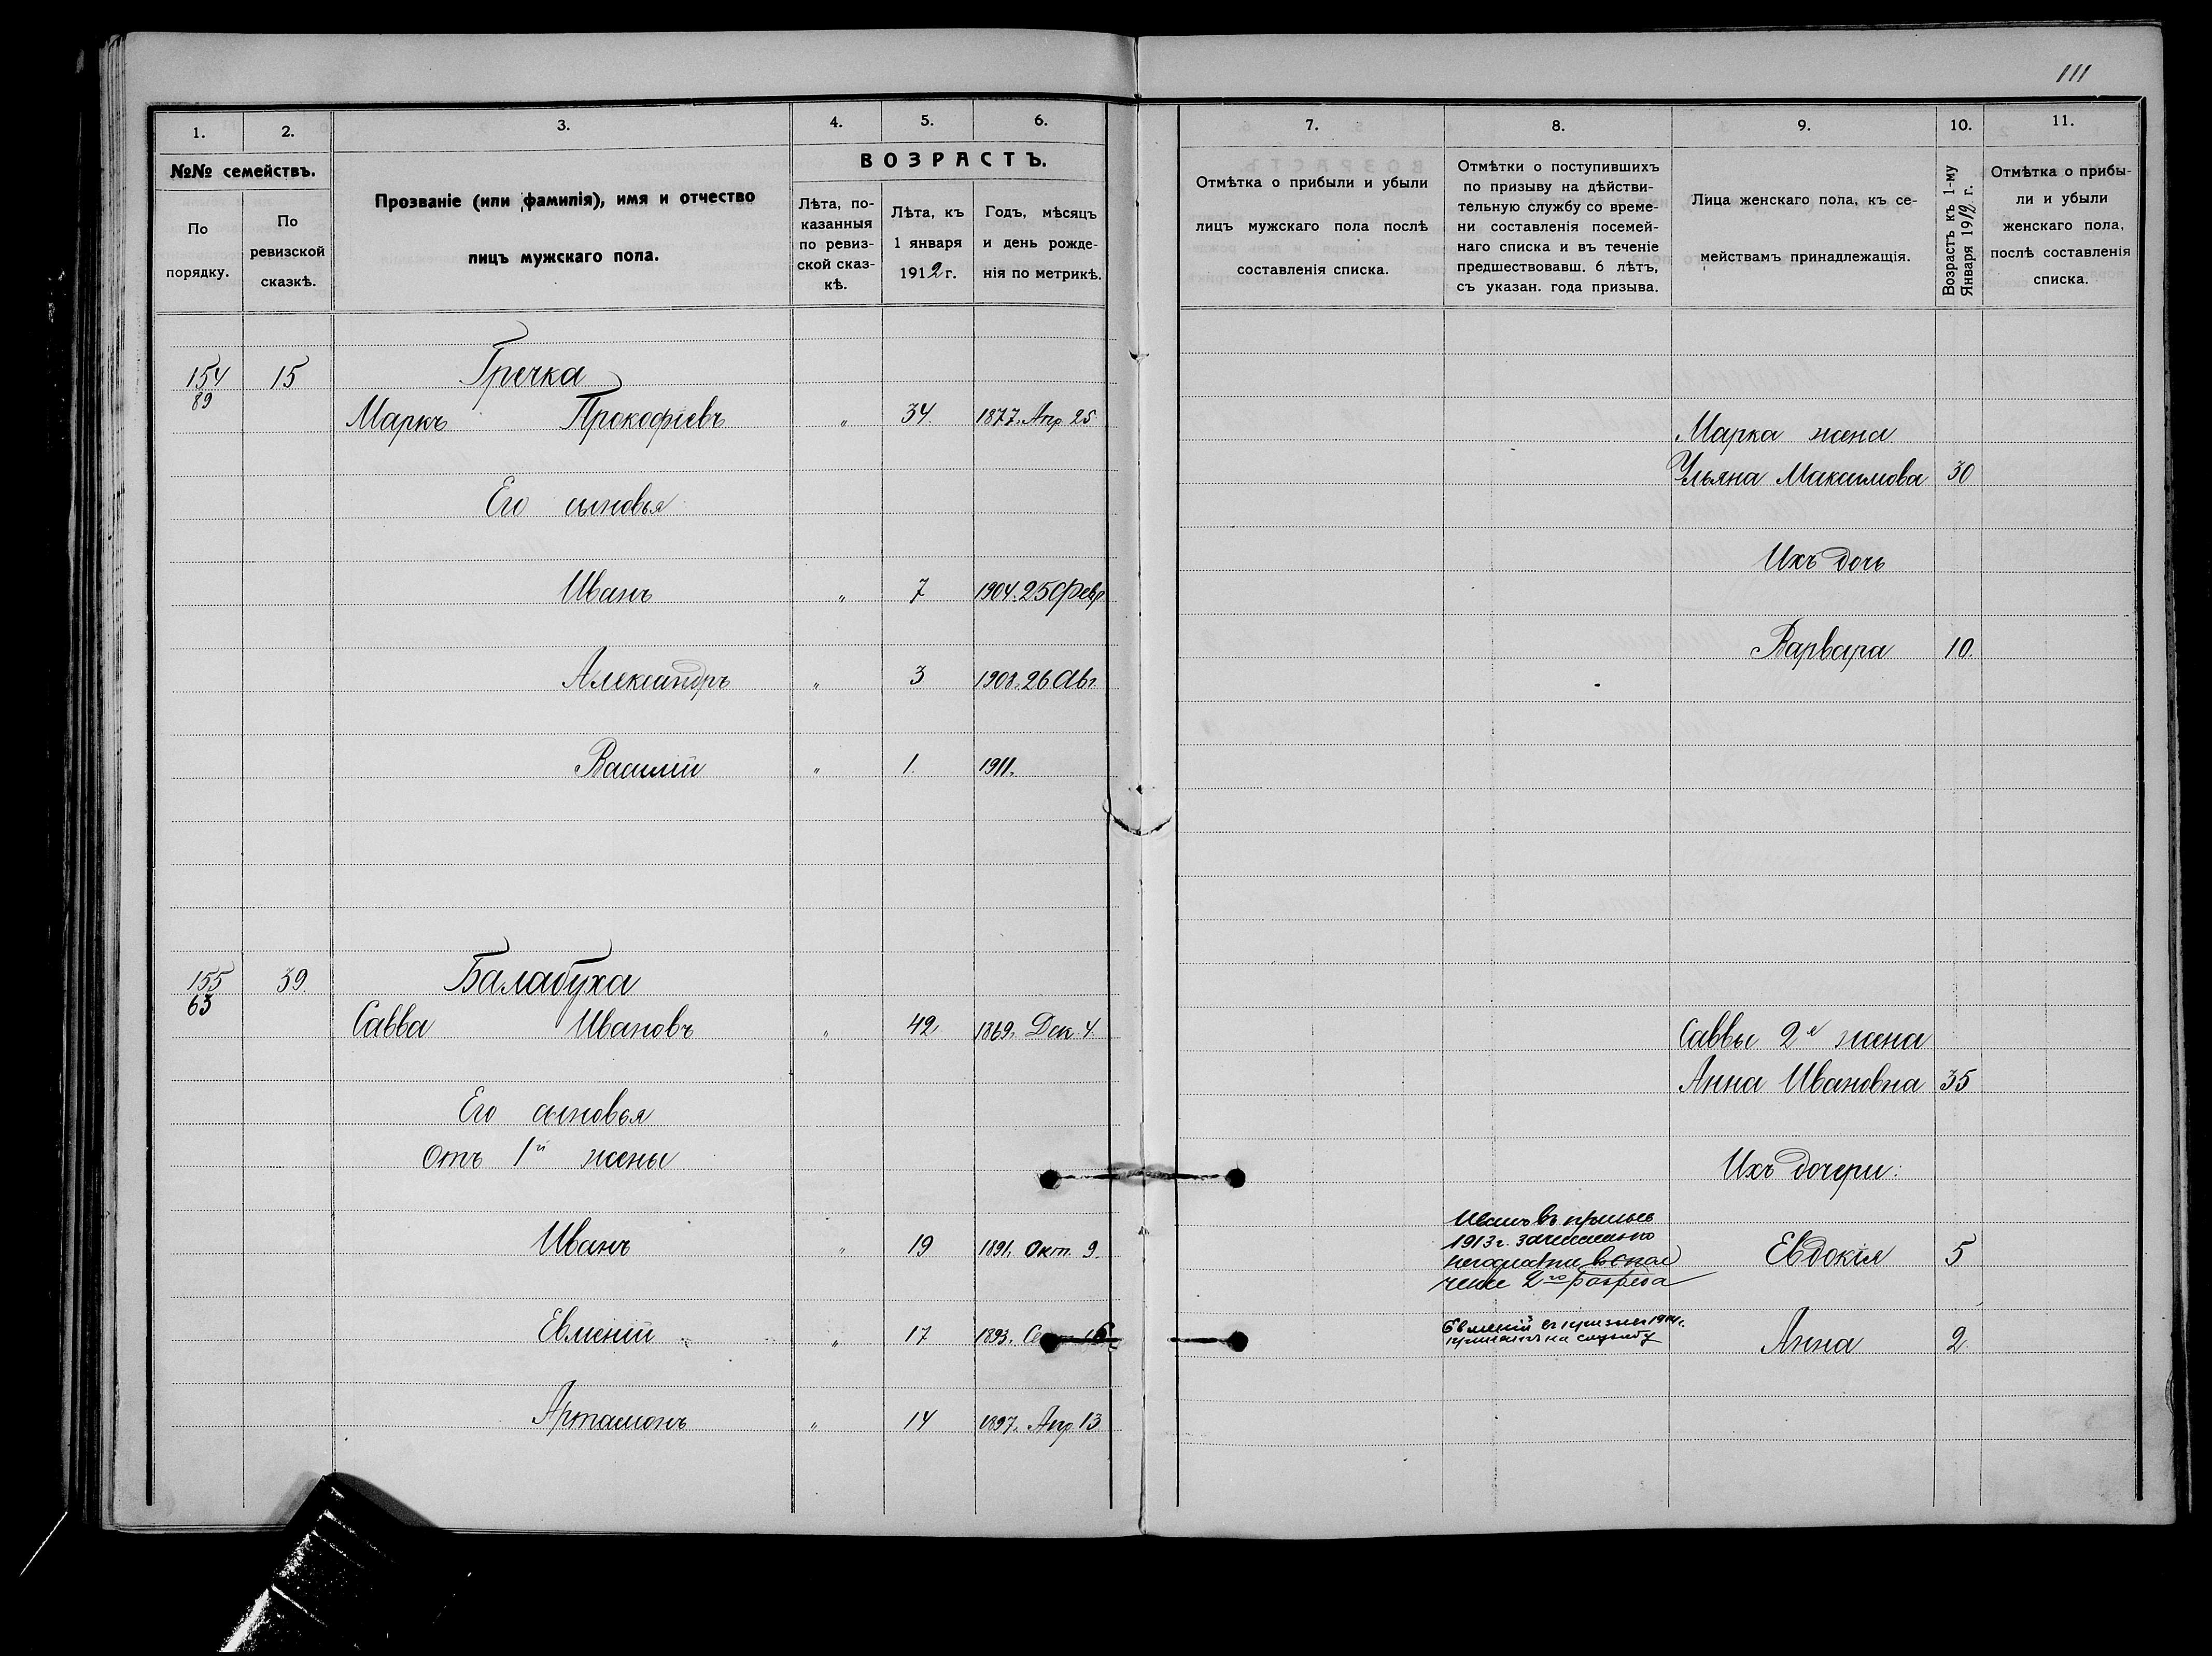 111
1.
2.
3.
4.
5.
6.
№№ семействъ.
По порядку.
По ревизской сказкѣ.
Прозваніе (или фамилія), имя и отчество
лицъ мужскаго пола.
ВОЗРАСТЪ.
Лѣта, по-
казанныя
по ревиз-
ской сказ-
кѣ.
Лѣта, къ
1 января
1912 г.
Годъ, мѣсяцъ
и день рожде-
нія по метрикѣ.
7.
8.
9.
10.
11.
Отмѣтка о прибыли и убыли
лицъ мужскаго пола послѣ
составленія списка.
Отмѣтки о поступившихъ
по призыву на дѣйстви-
тельную службу со време-
ни составленія посемей-
наго списка и въ теченіе
предшествовавш. 6 лѣтъ,
съ указан. года призыва.
Лица женскаго пола, къ се-
мействамъ принадлежащія.
Возрастъ къ 1-му
Января 1912 г.
Отмѣтка о прибы-
ли и убыли
женскаго пола,
послѣ составленія
списка.
154 15 Гречка
89
Маркъ Прокофіевъ " 34. 1877. Апр 25.
Его сыновья
Иванъ " 7 1904. 25 Февр
Александръ " 3 1908. 26 Авг.
Василій " 1. 1911.
155 39. Балабуха
63
Савва Ивановъ " 42 1869. Дек. 4.
Его сыновья
Отъ 1й жены
Иванъ " 19 1891. Окт. 9.
Евменій " 17 1893.
Артамонъ " 14 1897. Апр 13
Марка жена
Ульяна Максимова 30
Ихъ дочь
Варвара 10.
Саввы 2я жена
Анна Ивановна 35
Ихъ дочери:
Иванъ въ призывъ
1913 г.
2го разряда
Евдокія 5
Евменій въ призывъ 1914 г.
принятъ на службу
Анна 2.